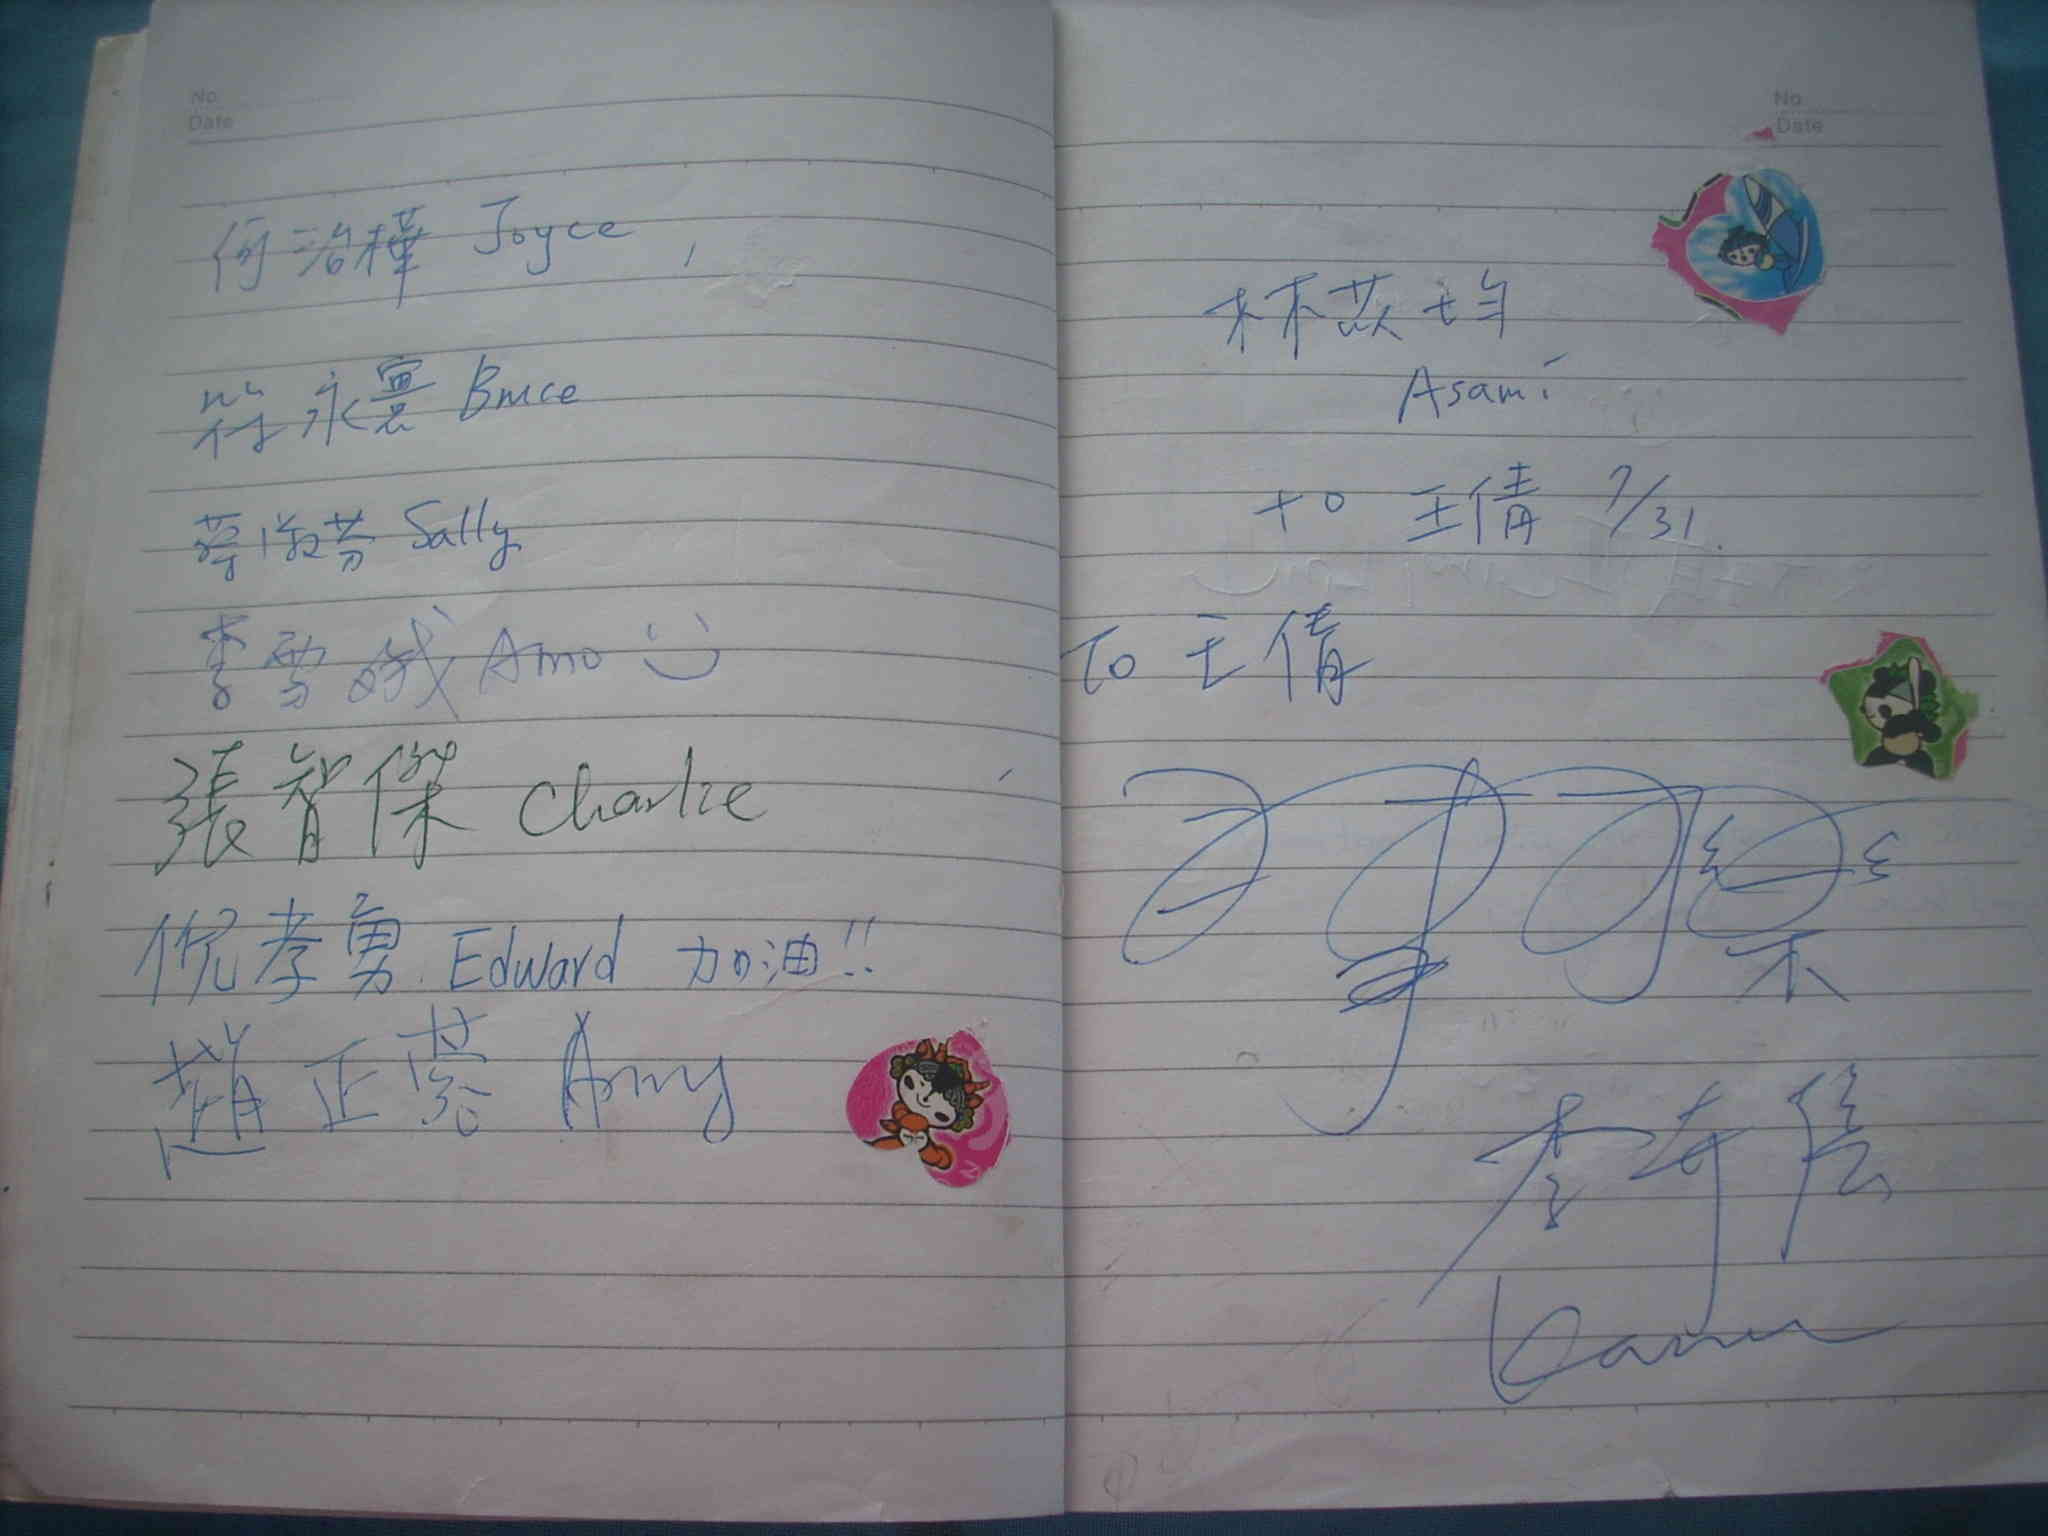 No
Date
何治樺 Joyce
符永 Bruce
蔡淑芬 Sally
李雪娥 Amo
張智傑 Charlie
倪孝勇 Edward 加油!!
趙正 Amy
No
Date
林苡均
Asami
to 王倩 7/31.
To 王倩
李奇